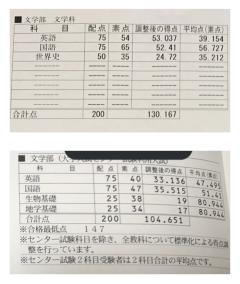 ■文学部 文学科
科 目 配点 素点 調整後の得点 平均点(素点)
英語 75 54 53.037 39.154
国語 75 65 52.41 56.727
世界史 50 35 24.72 35.212
合計点 200 130.167
■文学部
科 目 配点 素点 調整後の得点 平均点(素点)
英語 75 40 33.136 47.495
国語 75 47 35.515 51.41
生物基礎 25 38 19 80.944
地学基礎 25 34 17 80.944
合計点 200 104.651
※合格最低点 147
※センター試験科目を除き、全教科について標準化による得点調
整を行っています。
※センター試験2科目受験者は2科目合計の平均点です。